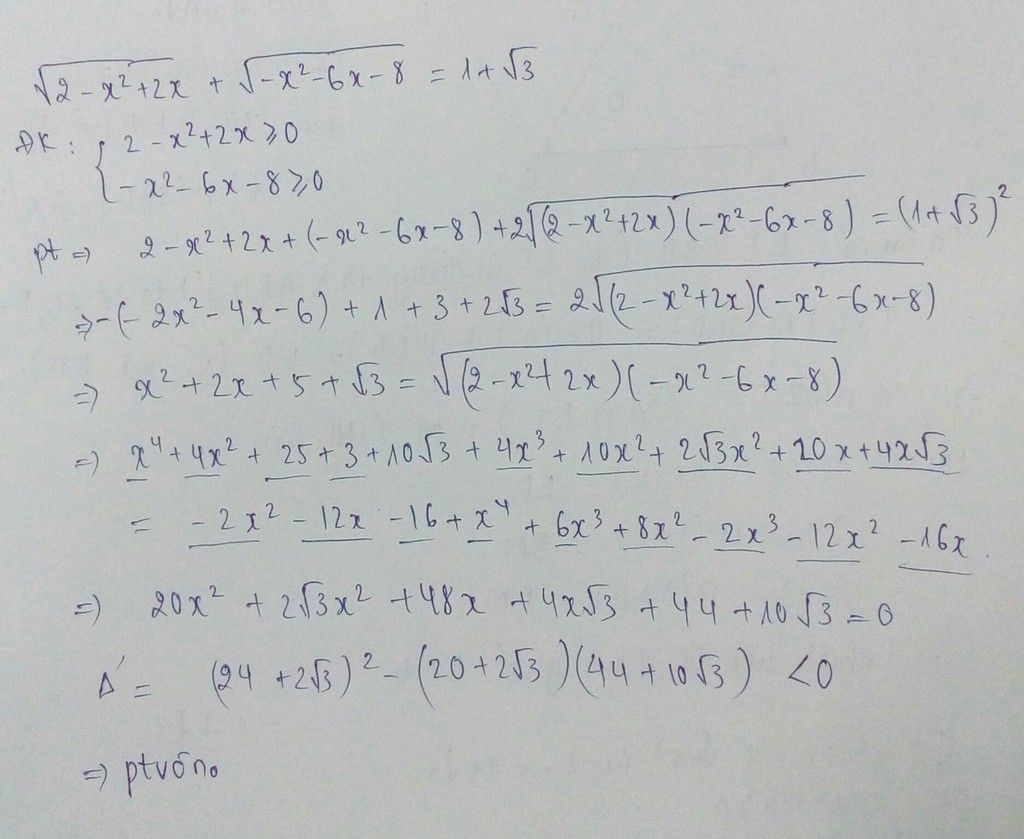 √(2 - x² + 2x) + √(-x² - 6x - 8) = 1 + √3
ĐK: { 2 - x² + 2x ≥ 0
-x² - 6x - 8 ≥ 0
pt ⇒ 2 - x² + 2x + (-x² - 6x - 8) + 2√((2 - x² + 2x)(-x² - 6x - 8)) = (1 + √3)²
⇒ -(-2x² - 4x - 6) + 1 + 3 + 2√3 = 2√((2 - x² + 2x)(-x² - 6x - 8))
⇒ x² + 2x + 5 + √3 = √((2 - x² + 2x)(-x² - 6x - 8))
⇒ x⁴ + 4x² + 25 + 3 + 10√3 + 4x³ + 10x² + 2√3x² + 20x + 4x√3
= -2x² - 12x - 16 + x⁴ + 6x³ + 8x² - 2x³ - 12x² - 16x
⇒ 20x² + 2√3x² + 48x + 4x√3 + 44 + 10√3 = 0
Δ' = (24 + 2√3)² - (20 + 2√3)(44 + 10√3) < 0
⇒ ptvôno